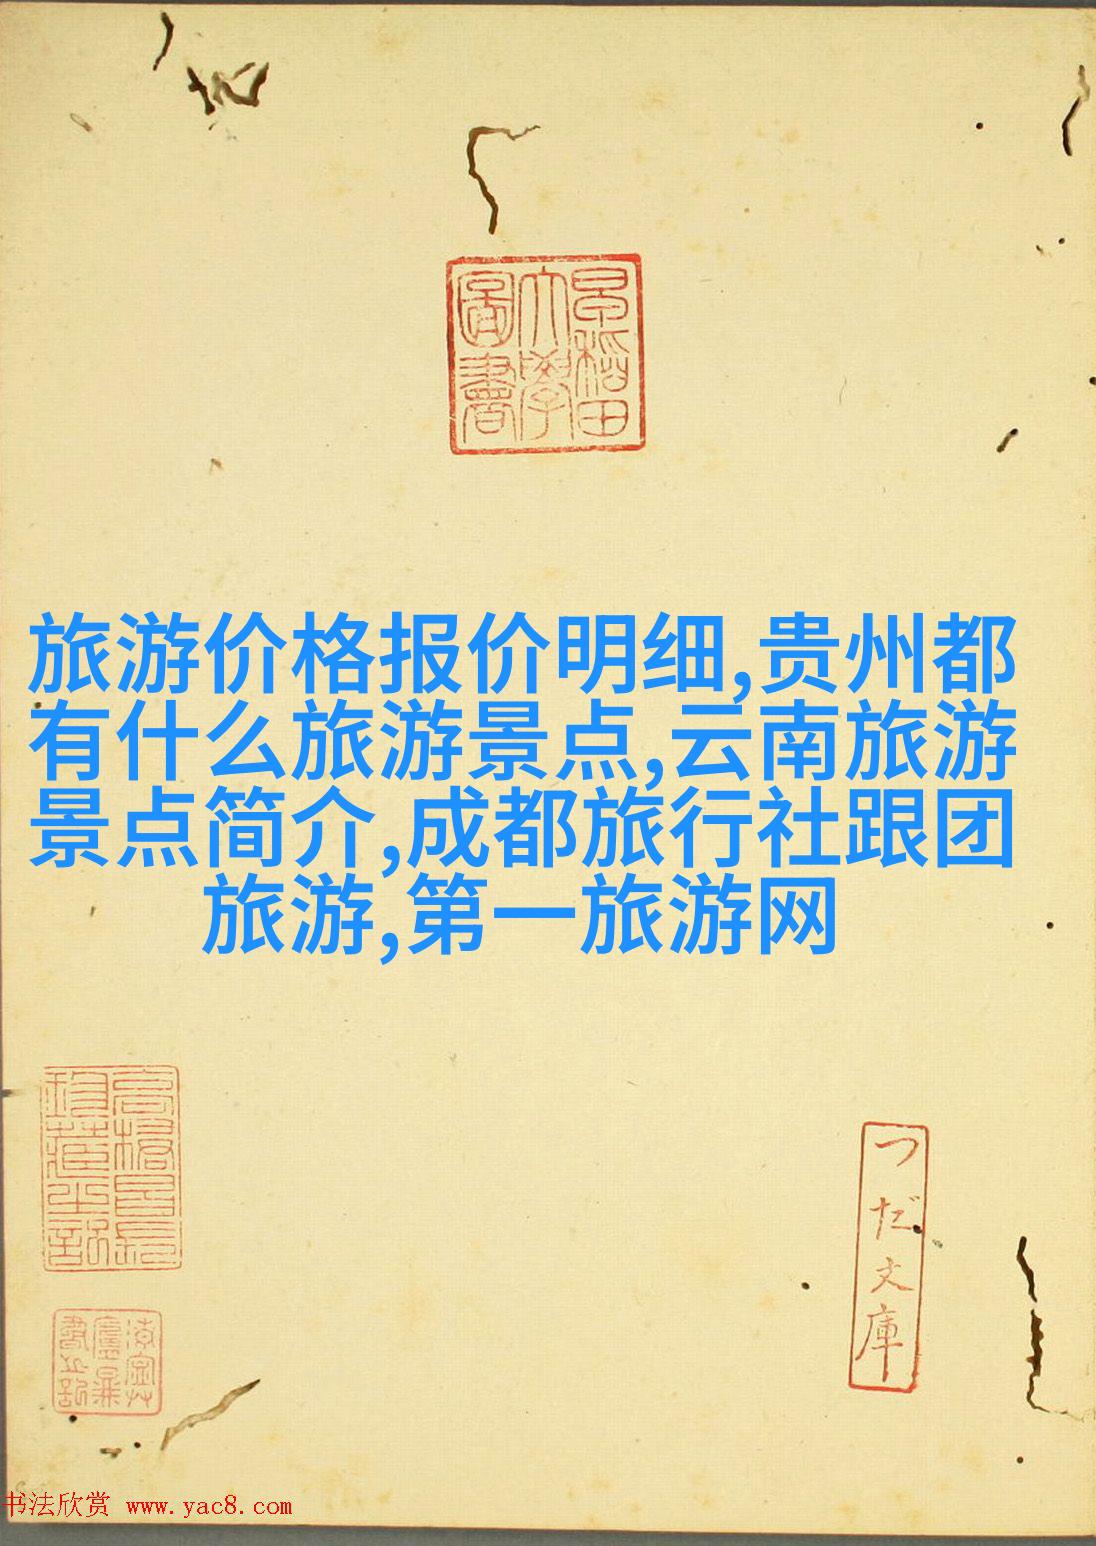 早稻田
大學
圖書
旅游价格报价明细,贵州都
有什么旅游景点,云南旅游
景点简介,成都旅行社跟团
旅游,第一旅游网
つだ文庫
书法欣赏 www.yac8.com